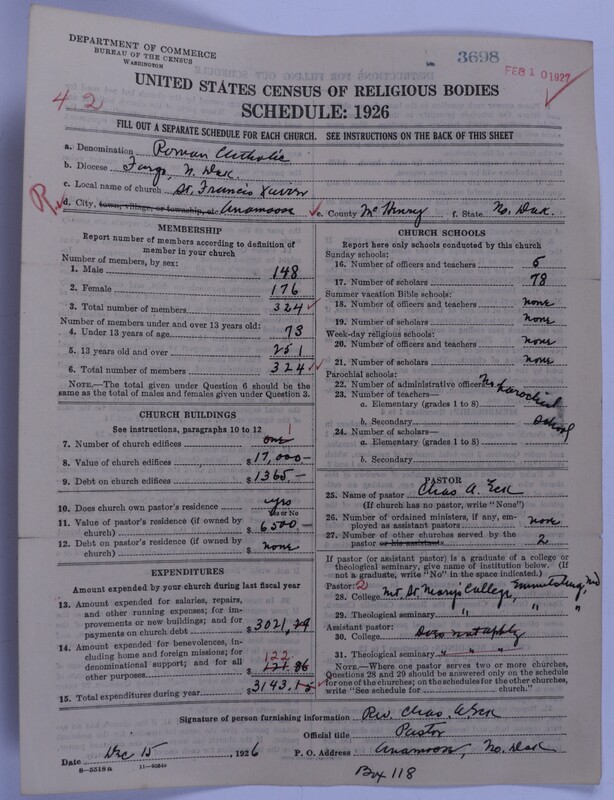 DEPARTMENT OF COMMERCE
BUREAU OF THE CENSUS
WASHINGTON
3698
FEB 10 1927
UNITED STATES CENSUS OF RELIGIOUS BODIES
SCHEDULE: 1926
42
FILL OUT A SEPARATE SCHEDULE FOR EACH CHURCH. SEE INSTRUCTIONS ON THE BACK OF THIS SHEET
a. Denomination Roman Catholic
b. Diocese Fargo, N. Dak.
c. Local name of church St. Francis Xavier
d. City, town, village, or township, etc Anamoose e. County McHenry f. State No. Dak.
MEMBERSHIP
Report number of members according to definition of
member in your church
Number of members, by sex:
1. Male 148
2. Female 176
3. Total number of members 324
Number of members under and over 13 years old:
4. Under 13 years of age 73
5. 13 years old and over 251
6. Total number of members 324
NOTE.—The total given under Question 6 should be
same as the total of males and females given under Question 3.
CHURCH BUILDINGS
See instructions, paragraphs 10 to 12
7. Number of church edifices one 1
8. Value of church edifices $17,000—
9. Debt on church edifices $1365.—
10. Does church own pastor's residence? yes
Yes or No
11. Value of pastor's residence (if owned by
church) $6500.—
12. Debt on pastor's residence (if owned by
church) $ none
EXPENDITURES
Amount expended by your church during last fiscal year
13. Amount expended for salaries, repairs,
and other running expenses; for im-
provements or new buildings; and for
payments on church debt $3021.29
14. Amount expended for benevolences, in-
cluding home and foreign missions; for
denominational support; and for all
other purposes 122 $121.86
15. Total expenditures during year $3143.15
CHURCH SCHOOLS
Report here only schools conducted by this church
Sunday schools:
16. Number of officers and teachers 5
17. Number of scholars 78
Summer vacation Bible schools:
18. Number of officers and teachers none
19. Number of scholars none
Week-day religious schools:
20. Number of officers and teachers none
21. Number of scholars none
Parochial schools:
22. Number of administrative officers No parochial
23. Number of teachers—
a. Elementary (grades 1 to 8)
b. Secondary school
24. Number of scholars—
a. Elementary (grades 1 to 8)
b. Secondary
PASTOR
25. Name of pastor Chas A. Eck
(If church has no pastor, write "None")
26. Number of ordained ministers, if any, em-
ployed as assistant pastors none
27. Number of other churches served by the
pastor or his assistants 2
If pastor (or assistant pastor) is a graduate of a college or
theological seminary, give name of institution below. (If
not a graduate, write "No" in the space indicated.)
Pastor: 2
28. College Mt. St. Marys College, Emmitsburg, Md
29. Theological seminary " " "
Assistant pastor:
30. College Does not apply
31. Theological seminary " " "
NOTE.—Where one pastor serves two or more churches,
Questions 28 and 29 should be answered only on the schedule
for one of the churches; on the schedules for the other churches,
write "See schedule for church."
Signature of person furnishing information Rev. Chas. A Eck
Official title Pastor
Date Dec 15, 1926 P. O. Address Anamoose, No. Dak
8—5518a
Box 118